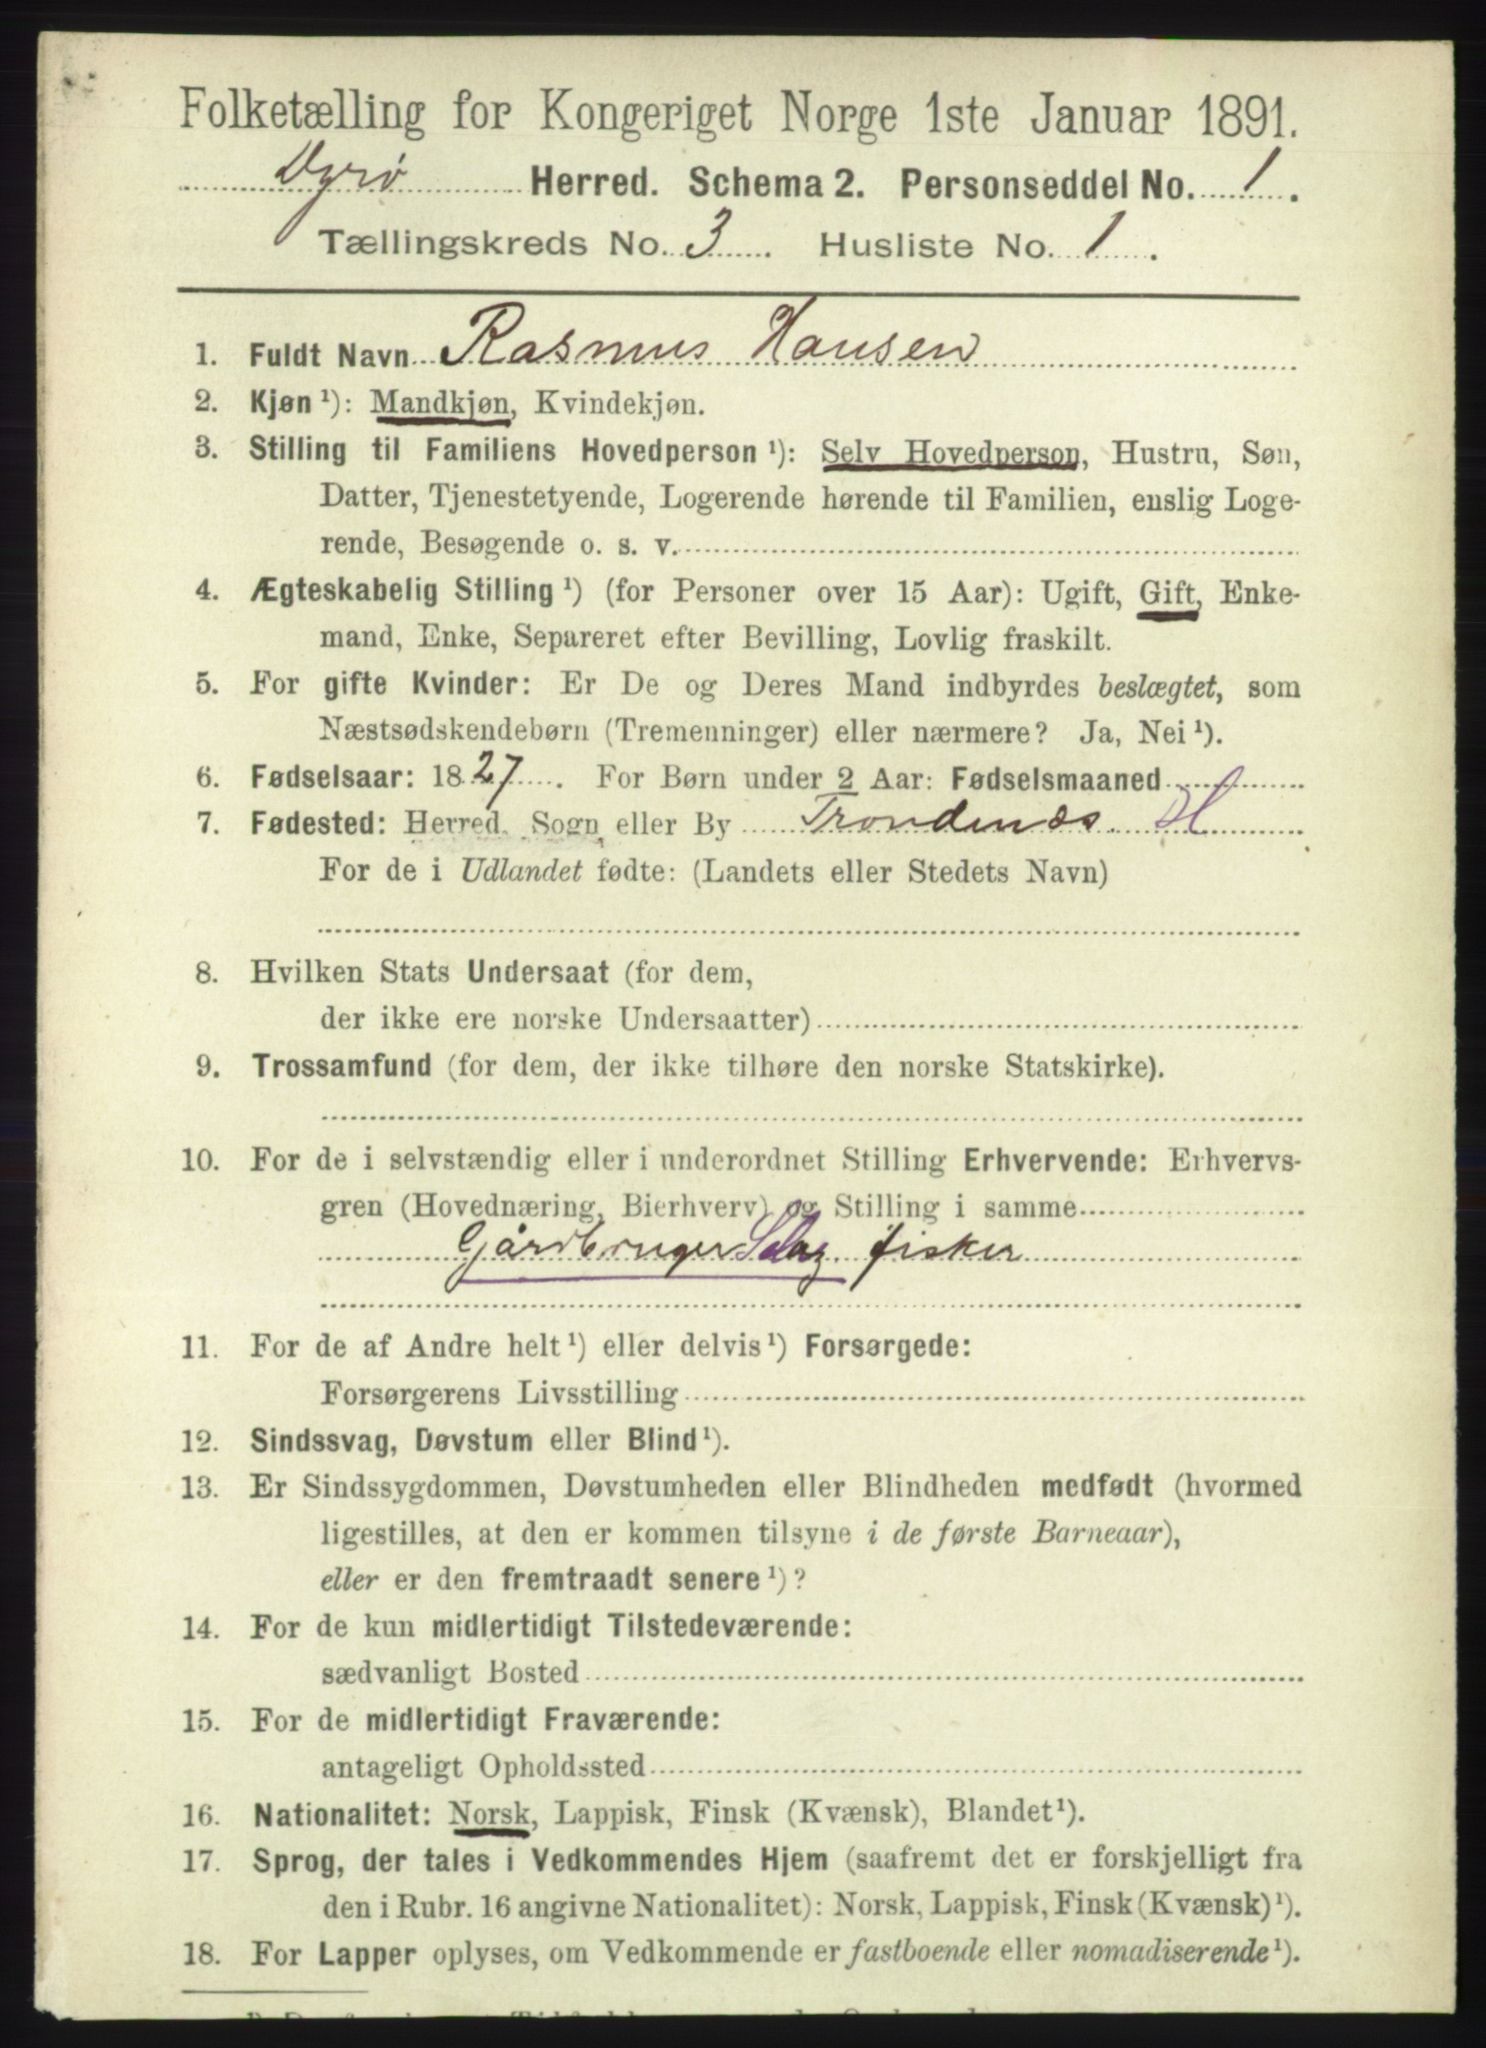 Folketælling for Kongeriget Norge 1ste Januar 1891.
Dyrø Herred. Schema 2. Personseddel No. 1.
Tællingskreds No. 3. Husliste No. 1.
1. Fuldt Navn Rasmus Hansen
2. Kjøn ¹): Mandkjøn, Kvindekjøn.
3. Stilling til Familiens Hovedperson ¹): Selv Hovedperson, Hustru, Søn,
Datter, Tjenestetyende, Logerende hørende til Familien, enslig Loge-
rende, Besøgende o. s. v.
4. Ægteskabelig Stilling ¹) (for Personer over 15 Aar): Ugift, Gift, Enke-
mand, Enke, Separeret efter Bevilling, Lovlig fraskilt.
5. For gifte Kvinder: Er De og Deres Mand indbyrdes beslægtet, som
Næstsødskendebørn (Tremenninger) eller nærmere? Ja, Nei ¹).
6. Fødselsaar: 1827. For Børn under 2 Aar: Fødselsmaaned
7. Fødested: Herred, Sogn eller By Trondenæs. H
For de i Udlandet fødte: (Landets eller Stedets Navn)
8. Hvilken Stats Undersaat (for dem,
der ikke ere norske Undersaatter)
9. Trossamfund (for dem, der ikke tilhøre den norske Statskirke).
10. For de i selvstændig eller i underordnet Stilling Erhvervende: Erhvervs-
gren (Hovednæring, Bierhverv) og Stilling i samme
Gårdbruger fisker
11. For de af Andre helt ¹) eller delvis ¹) Forsørgede:
Forsørgerens Livsstilling
12. Sindssvag, Døvstum eller Blind ¹).
13. Er Sindssygdommen, Døvstumheden eller Blindheden medfødt (hvormed
ligestilles, at den er kommen tilsyne i de første Barneaar),
eller er den fremtraadt senere ¹)?
14. For de kun midlertidigt Tilstedeværende:
sædvanligt Bosted
15. For de midlertidigt Fraværende:
antageligt Opholdssted
16. Nationalitet: Norsk, Lappisk, Finsk (Kvænsk), Blandet ¹).
17. Sprog, der tales i Vedkommendes Hjem (saafremt det er forskjelligt fra
den i Rubr. 16 angivne Nationalitet): Norsk, Lappisk, Finsk (Kvænsk) ¹).
18. For Lapper oplyses, om Vedkommende er fastboende eller nomadiserende ¹).